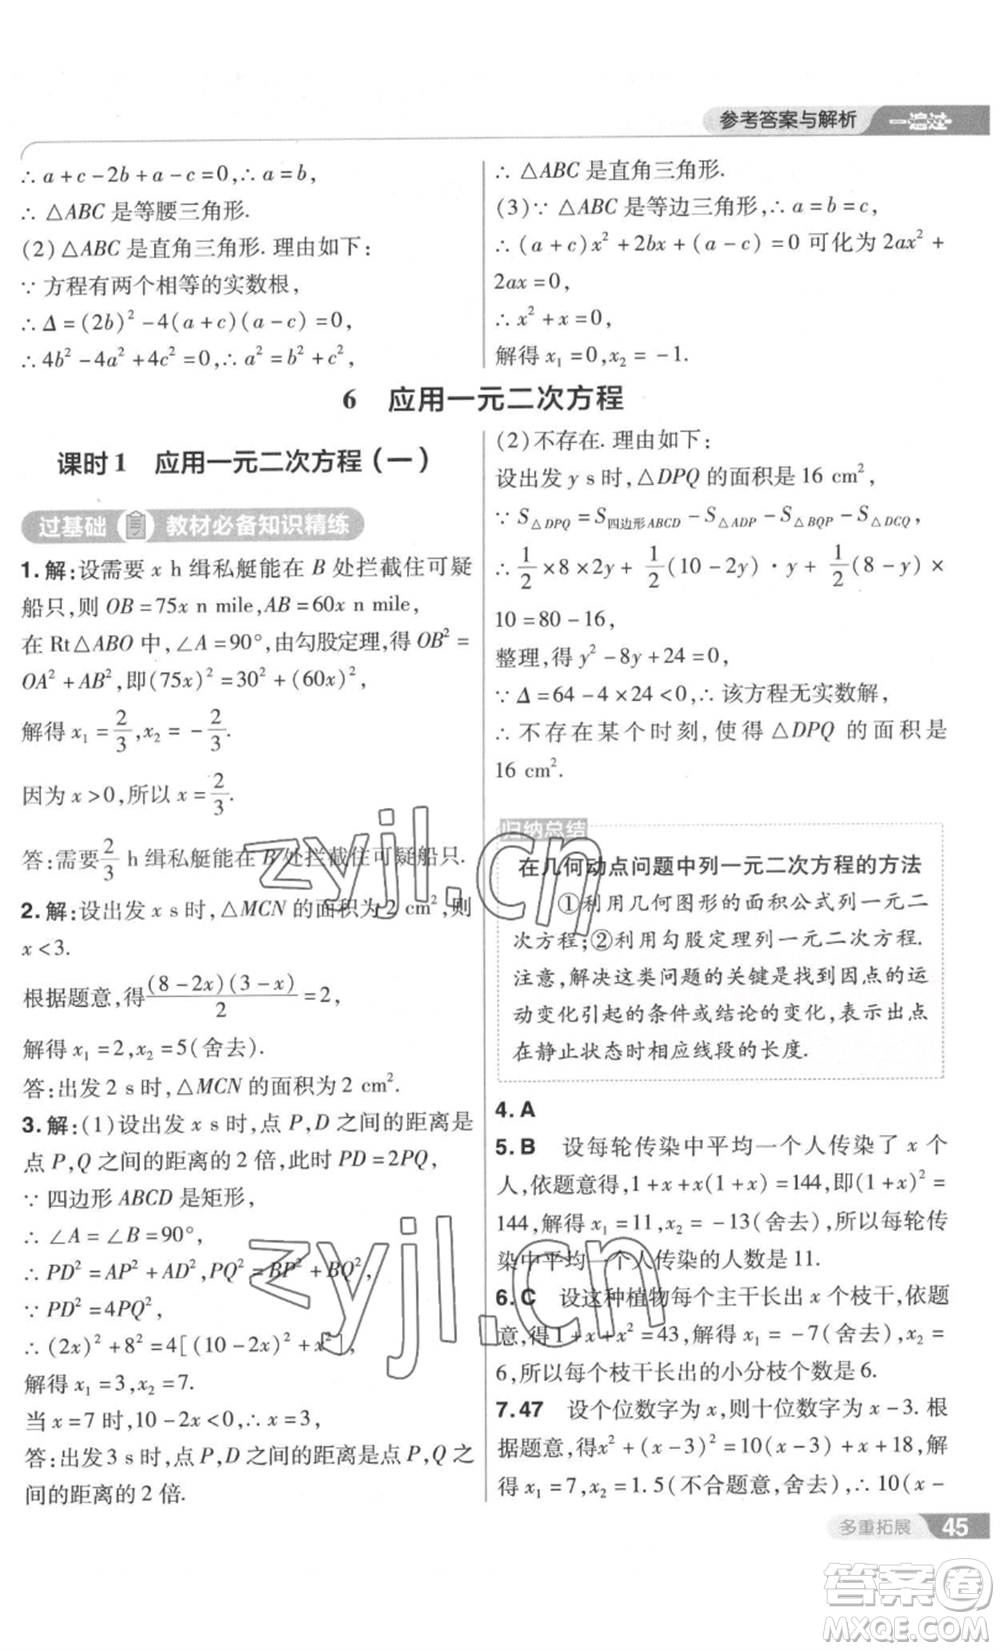 参考答案与解析 一遍过
∴ a+c-2b+a-c=0,∴ a=b,
∴ △ABC 是等腰三角形.
(2)△ABC 是直角三角形. 理由如下:
∵ 方程有两个相等的实数根,
∴ Δ=(2b)²-4(a+c)(a-c)=0,
∴ 4b²-4a²+4c²=0,∴ a²=b²+c²,
∴ △ABC 是直角三角形.
(3)∵ △ABC 是等边三角形,∴ a=b=c,
∴ (a+c)x²+2bx+(a-c)=0 可化为 2ax²+
2ax=0,
∴ x²+x=0,
解得 x₁=0,x₂=-1.
6 应用一元二次方程
课时1 应用一元二次方程(一)
过基础 教材必备知识精练
1.解:设需要 x h 缉私艇能在 B 处拦截住可疑
船只,则 OB=75x n mile,AB=60x n mile,
在 Rt△ABO 中,∠A=90°,由勾股定理,得 OB²=
OA²+AB²,即(75x)²=30²+(60x)²,
解得 x₁=2/3,x₂=-2/3.
因为 x>0,所以 x=2/3.
答:需要2/3 h 缉私艇能在 B 处拦截住可疑船只.
2.解:设出发 x s时,△MCN 的面积为 2 cm²,则
x<3.
根据题意,得(8-2x)(3-x)/2=2,
解得 x₁=2,x₂=5(舍去).
答:出发 2 s 时,△MCN 的面积为 2 cm².
3.解:(1)设出发 x s时,点 P,D 之间的距离是
点 P,Q 之间的距离的 2 倍,此时 PD=2PQ,
∵ 四边形 ABCD 是矩形,
∴ ∠A=∠B=90°,
∴ PD²=AP²+AD²,PQ²=BP²+BQ²,
∵ PD²=4PQ²,
∴ (2x)²+8²=4[(10-2x)²+x²],
解得 x₁=3,x₂=7.
当 x=7 时,10-2x<0,∴ x=3,
答:出发 3 s 时,点 P,D 之间的距离是点 P,Q 之
间的距离的 2 倍.
(2)不存在. 理由如下:
设出发 y s 时,△DPQ 的面积是 16 cm²,
∵ S△DPQ=S四边形ABCD-S△ADP-S△BQP-S△DCQ,
∴ 1/2×8×2y+1/2(10-2y)·y+1/2(8-y)×
10=80-16,
整理,得 y²-8y+24=0,
∵ Δ=64-4×24<0,∴ 该方程无实数解,
∴ 不存在某个时刻,使得△DPQ 的面积是
16 cm².
归纳总结
在几何动点问题中列一元二次方程的方法
①利用几何图形的面积公式列一元二
次方程;②利用勾股定理列一元二次方程.
注意,解决这类问题的关键是找到因点的运
动变化引起的条件或结论的变化,表示出点
在静止状态时相应线段的长度.
4.A
5.B 设每轮传染中平均一个人传染了 x 个
人,依题意得,1+x+x(1+x)=144,即(1+x)²=
144,解得 x₁=11,x₂=-13(舍去),所以每轮传
染中平均一个人传染的人数是 11.
6.C 设这种植物每个主干长出 x 个枝干,依题
意,得 1+x+x²=43,解得 x₁=-7(舍去),x₂=
6,所以每个枝干长出的小分枝个数是 6.
7.47 设个位数字为 x,则十位数字为 x-3. 根
据题意,得x²+(x-3)²=10(x-3)+x+18,解
得 x₁=7,x₂=1.5(不合题意,舍去),∴ 10(x-
多重拓展 45
zyjl.cn
zyjl.cn
答案圈
MXQE.COM